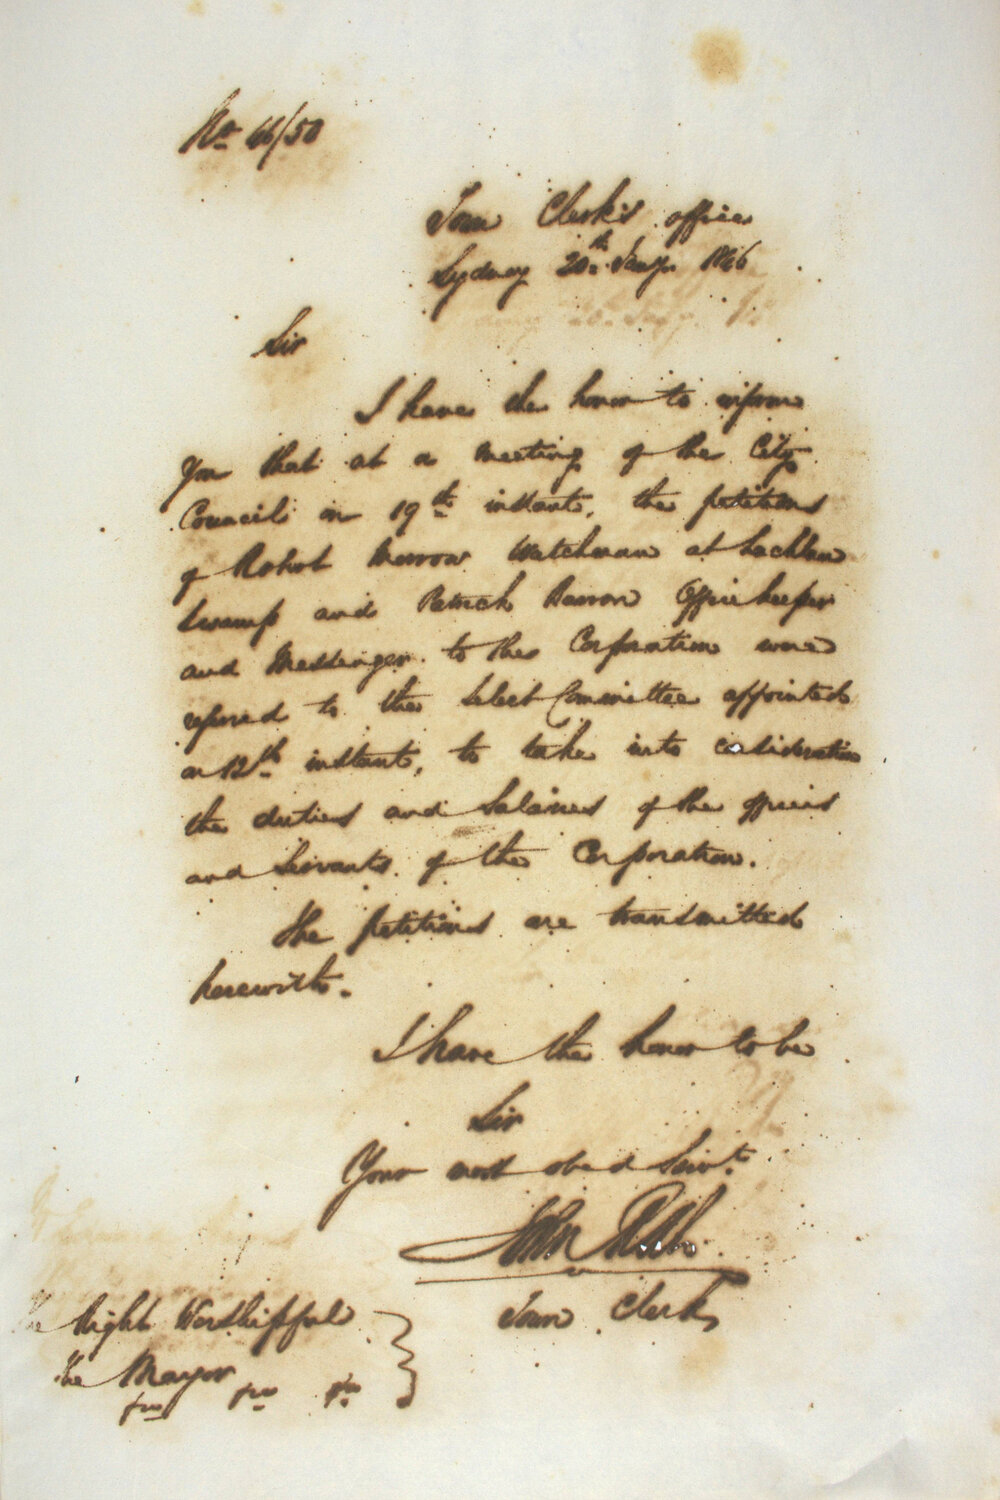 No 66/50
Town Clerk's office
Sydney 20th Jany. 1866
Sir
I have the honor to inform
you that at a meeting of the City
Council on 19th instant, the petitions
of Robert Morrow Watchman at Lachlan
Swamp and Patrick Barron Office keeper
and Messenger to the Corporation were
referred to the Select Committee appointed
on 12th instant, to take into consideration
the duties and Salaries of the officers
and Servants of the Corporation.
The petitions are transmitted
herewith.
I have the honor to be
Sir
Your most obed Servt.
John
Town Clerk
The Right Worshipful
The Mayor